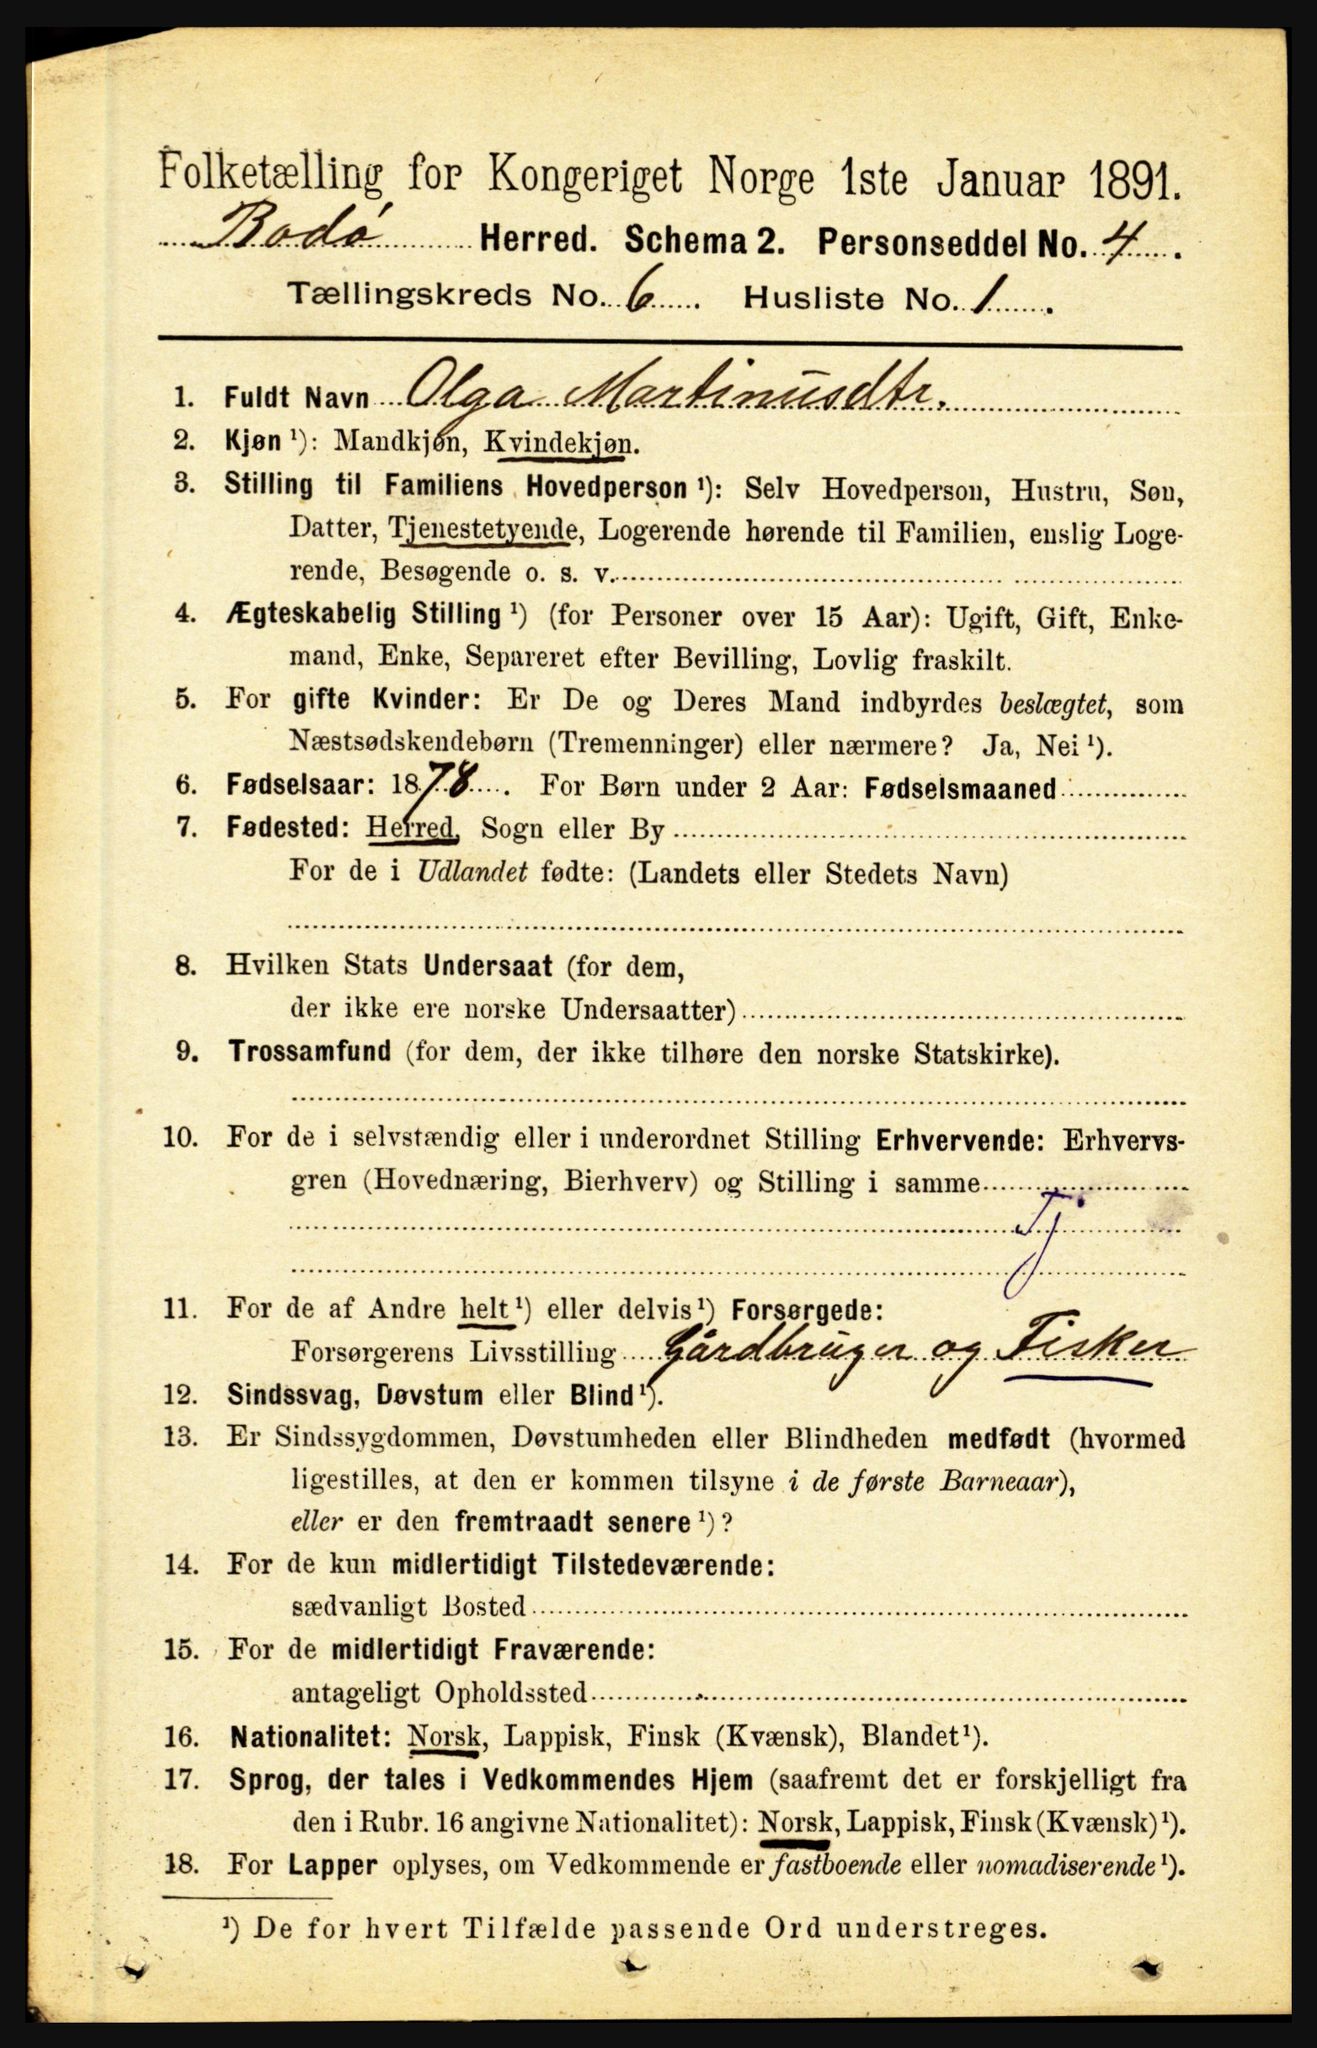 Folketælling for Kongeriget Norge 1ste Januar 1891.
Bodø Herred. Schema 2. Personseddel No. 4.
Tællingskreds No. 6. Husliste No. 1.
1. Fuldt Navn Olga Martinusdtr.
2. Kjøn ¹): Mandkjøn, Kvindekjøn.
3. Stilling til Familiens Hovedperson ¹): Selv Hovedperson, Hustru, Søn,
Datter, Tjenestetyende, Logerende hørende til Familien, enslig Loge-
rende, Besøgende o. s. v.
4. Ægteskabelig Stilling ¹) (for Personer over 15 Aar): Ugift, Gift, Enke-
mand, Enke, Separeret efter Bevilling, Lovlig fraskilt.
5. For gifte Kvinder: Er De og Deres Mand indbyrdes beslægtet, som
Næstsødskendebørn (Tremenninger) eller nærmere? Ja, Nei ¹).
6. Fødselsaar: 1878. For Børn under 2 Aar: Fødselsmaaned
7. Fødested: Herred, Sogn eller By
For de i Udlandet fødte: (Landets eller Stedets Navn)
8. Hvilken Stats Undersaat (for dem,
der ikke ere norske Undersaatter)
9. Trossamfund (for dem, der ikke tilhøre den norske Statskirke).
10. For de i selvstændig eller i underordnet Stilling Erhvervende: Erhvervs-
gren (Hovednæring, Bierhverv) og Stilling i samme
Tj
11. For de af Andre helt ¹) eller delvis ¹) Forsørgede:
Forsørgerens Livsstilling Gårdbruger og Fisker
12. Sindssvag, Døvstum eller Blind ¹).
13. Er Sindssygdommen, Døvstumheden eller Blindheden medfødt (hvormed
ligestilles, at den er kommen tilsyne i de første Barneaar),
eller er den fremtraadt senere ¹)?
14. For de kun midlertidigt Tilstedeværende:
sædvanligt Bosted
15. For de midlertidigt Fraværende:
antageligt Opholdssted
16. Nationalitet: Norsk, Lappisk, Finsk (Kvænsk), Blandet ¹).
17. Sprog, der tales i Vedkommendes Hjem (saafremt det er forskjelligt fra
den i Rubr. 16 angivne Nationalitet): Norsk, Lappisk, Finsk (Kvænsk) ¹).
18. For Lapper oplyses, om Vedkommende er fastboende eller nomadiserende ¹).
¹) De for hvert Tilfælde passende Ord understreges.